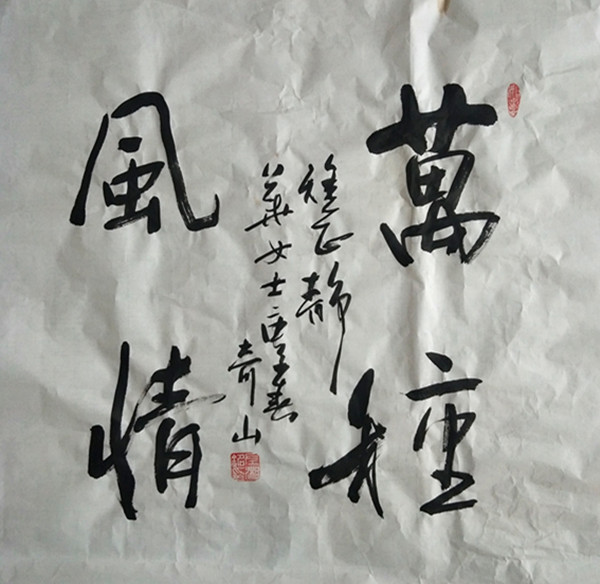 萬種
風情
雅正静
華女士
奇山